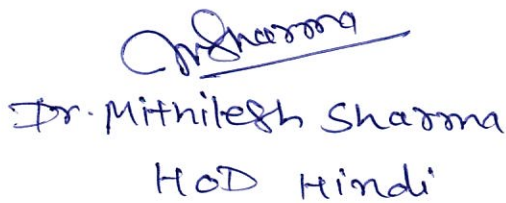 MSharma
Dr. Mithilesh Sharma
HOD Hindi